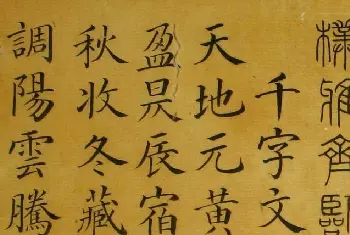 千字文
天地元黄
盈昃辰宿
秋收冬藏
調陽雲騰